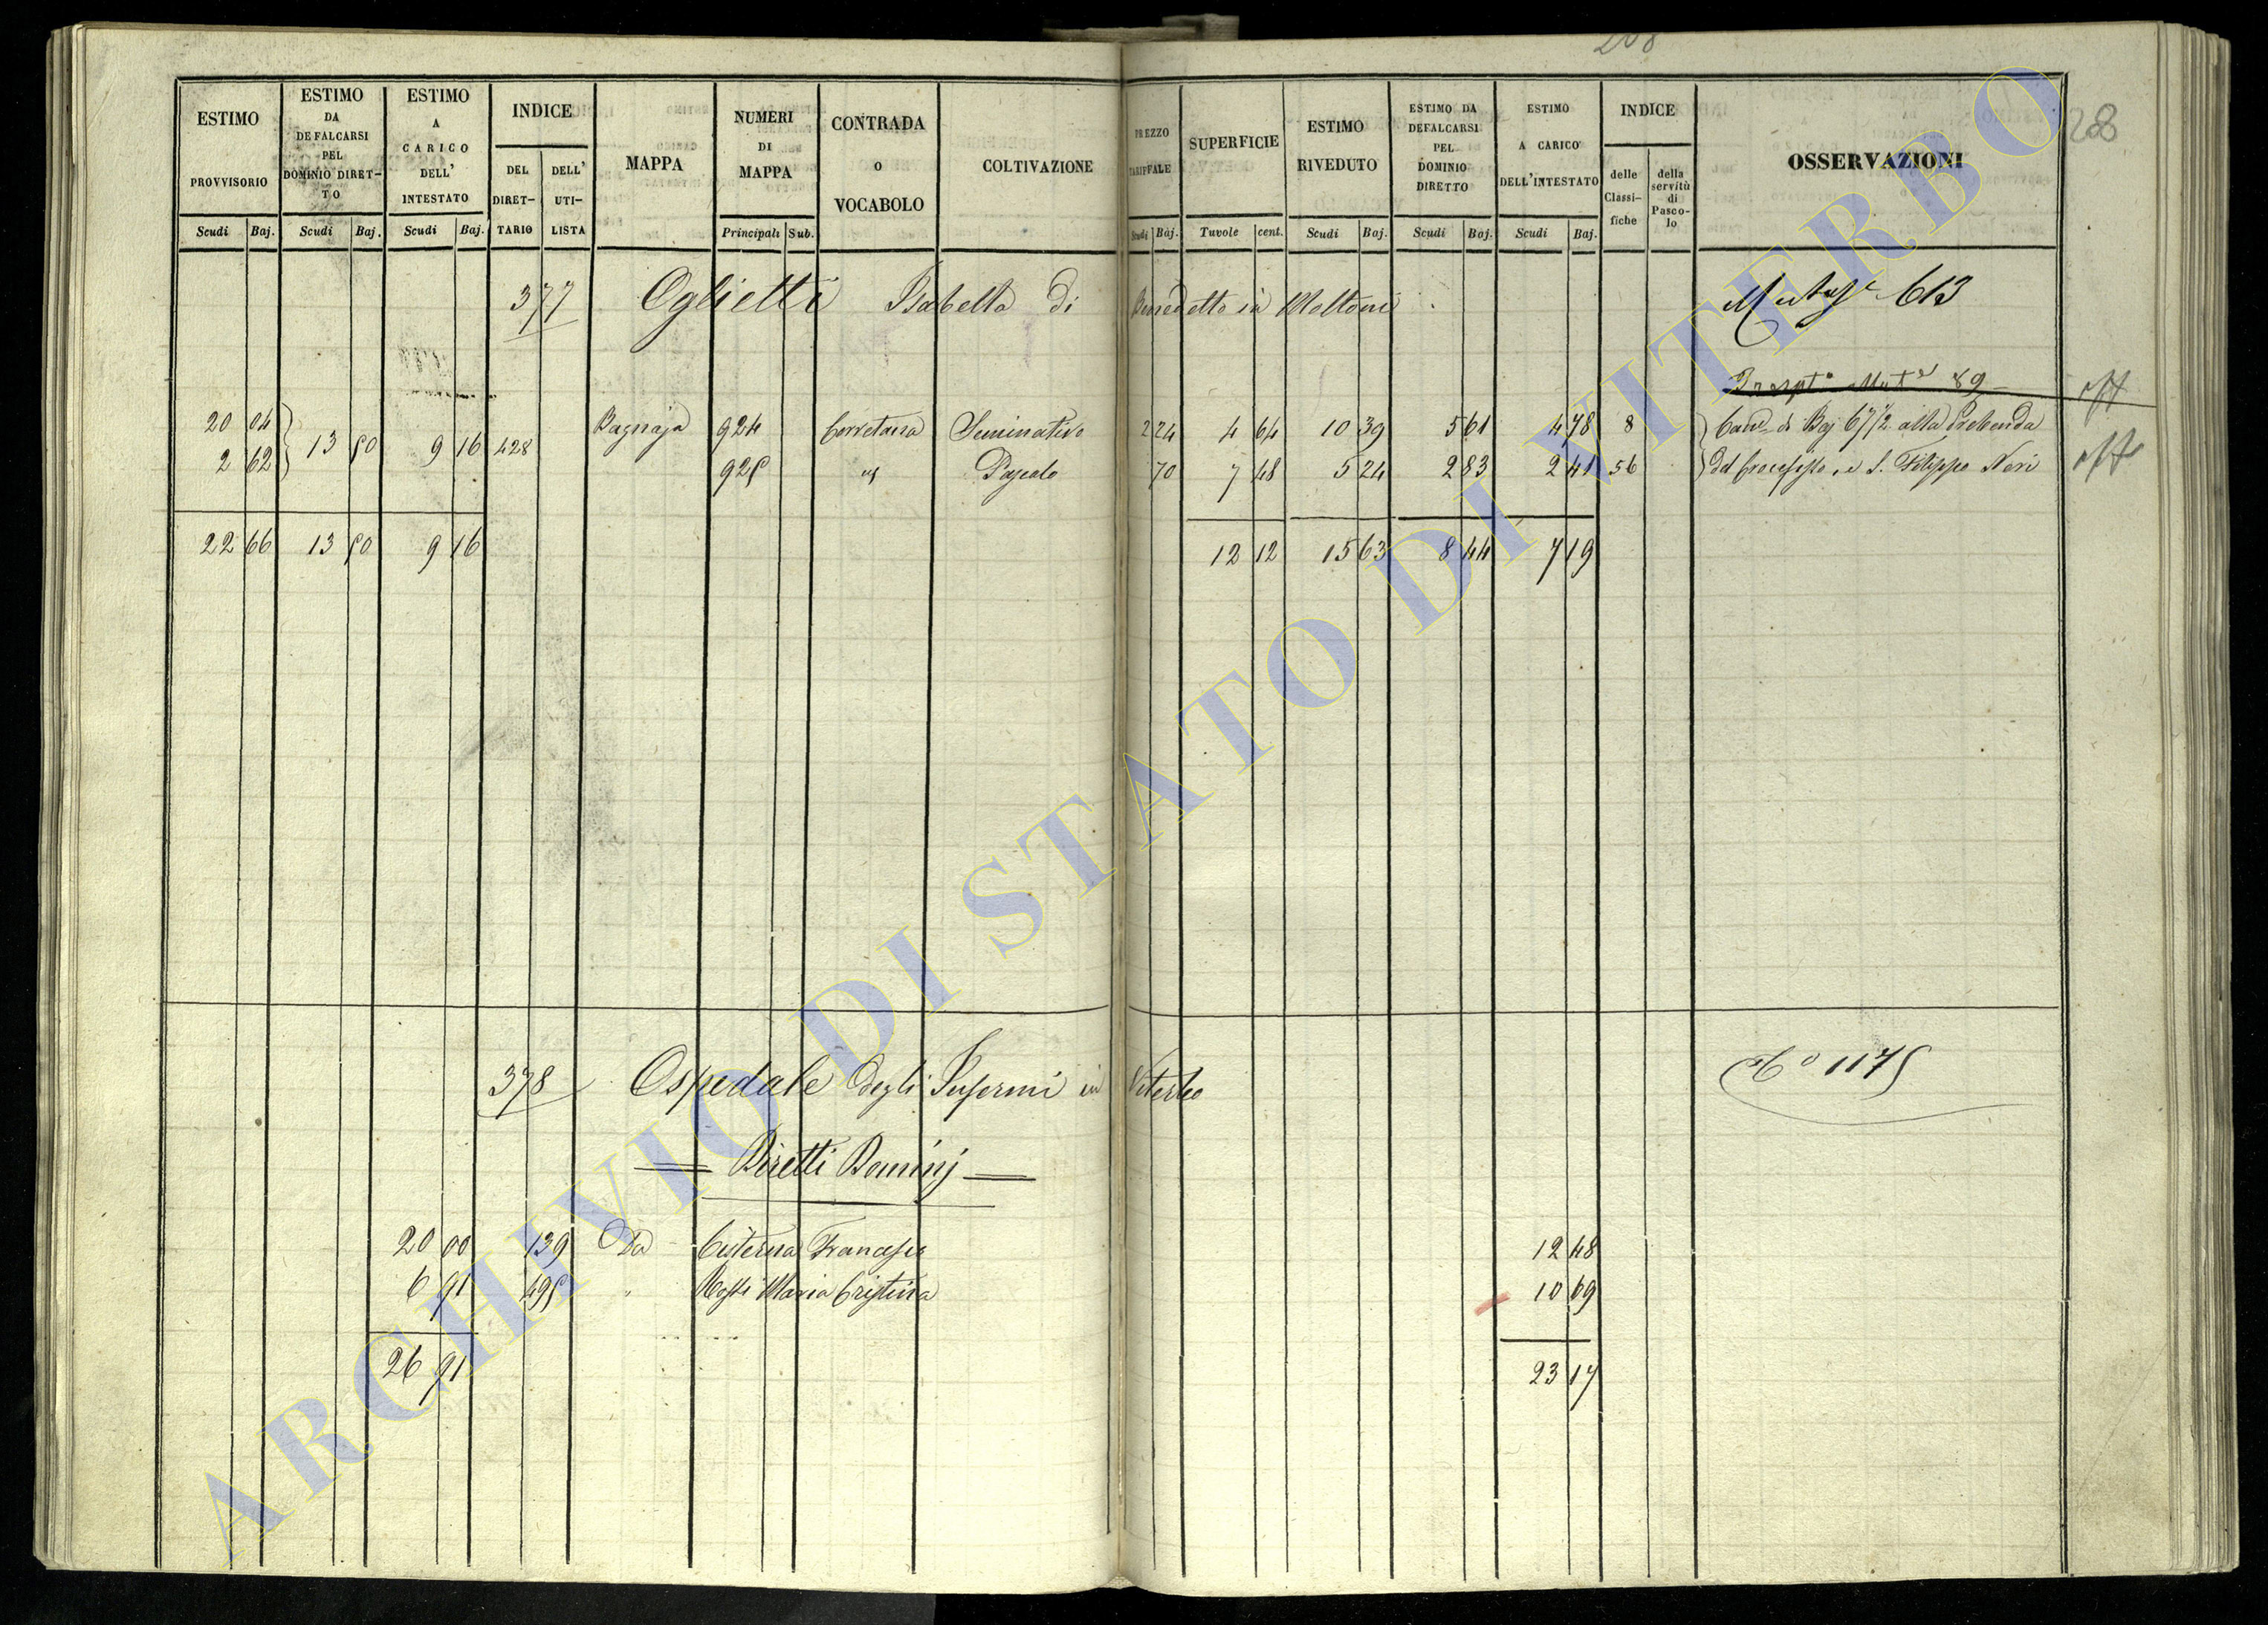 208
208
ESTIMO PROVVISORIO
ESTIMO DA DEFALCARSI PEL DOMINIO DIRET-TO
ESTIMO A CARICO DELL' INTESTATO
INDICE
DEL DIRET-TARIO
DELL' UTI-LISTA
MAPPA
NUMERI DI MAPPA
CONTRADA o VOCABOLO
COLTIVAZIONE
PREZZO TARIFFALE
SUPERFICIE
ESTIMO RIVEDUTO
ESTIMO DA DEFALCARSI PEL DOMINIO DIRETTO
ESTIMO A CARICO DELL'INTESTATO
INDICE
delle Classi-fiche
della servitù di Pasco-lo
OSSERVAZIONI
Scudi Baj. Scudi Baj. Scudi Baj. Principali Sub. Scudi Baj. Tavole cent. Scudi Baj. Scudi Baj. Scudi Baj.
377 Oglietti Isabella di Benedetto in Moltoni 613
89
20 04 13 50 9 16 428 Bagnaja 924 Corretana Seminativo 2 24 4 64 10 39 5 61 4 78 8 di Baj 67 1/2 alla Prebenda
2 62 925 " Pascolo 70 7 48 5 24 2 83 2 41 56 del e S. Filippo Neri
22 66 13 50 9 16 12 12 15 63 8 44 7 19
378 Ospedale degli Infermi in Viterbo No 1175
Diretti Dominj
20 00 139 Da Cisterna Francesco 12 48
6 91 495 " Rossi Maria Cristina 10 69
26 91 23 17
ARCHIVIO DI STATO DI VITERBO